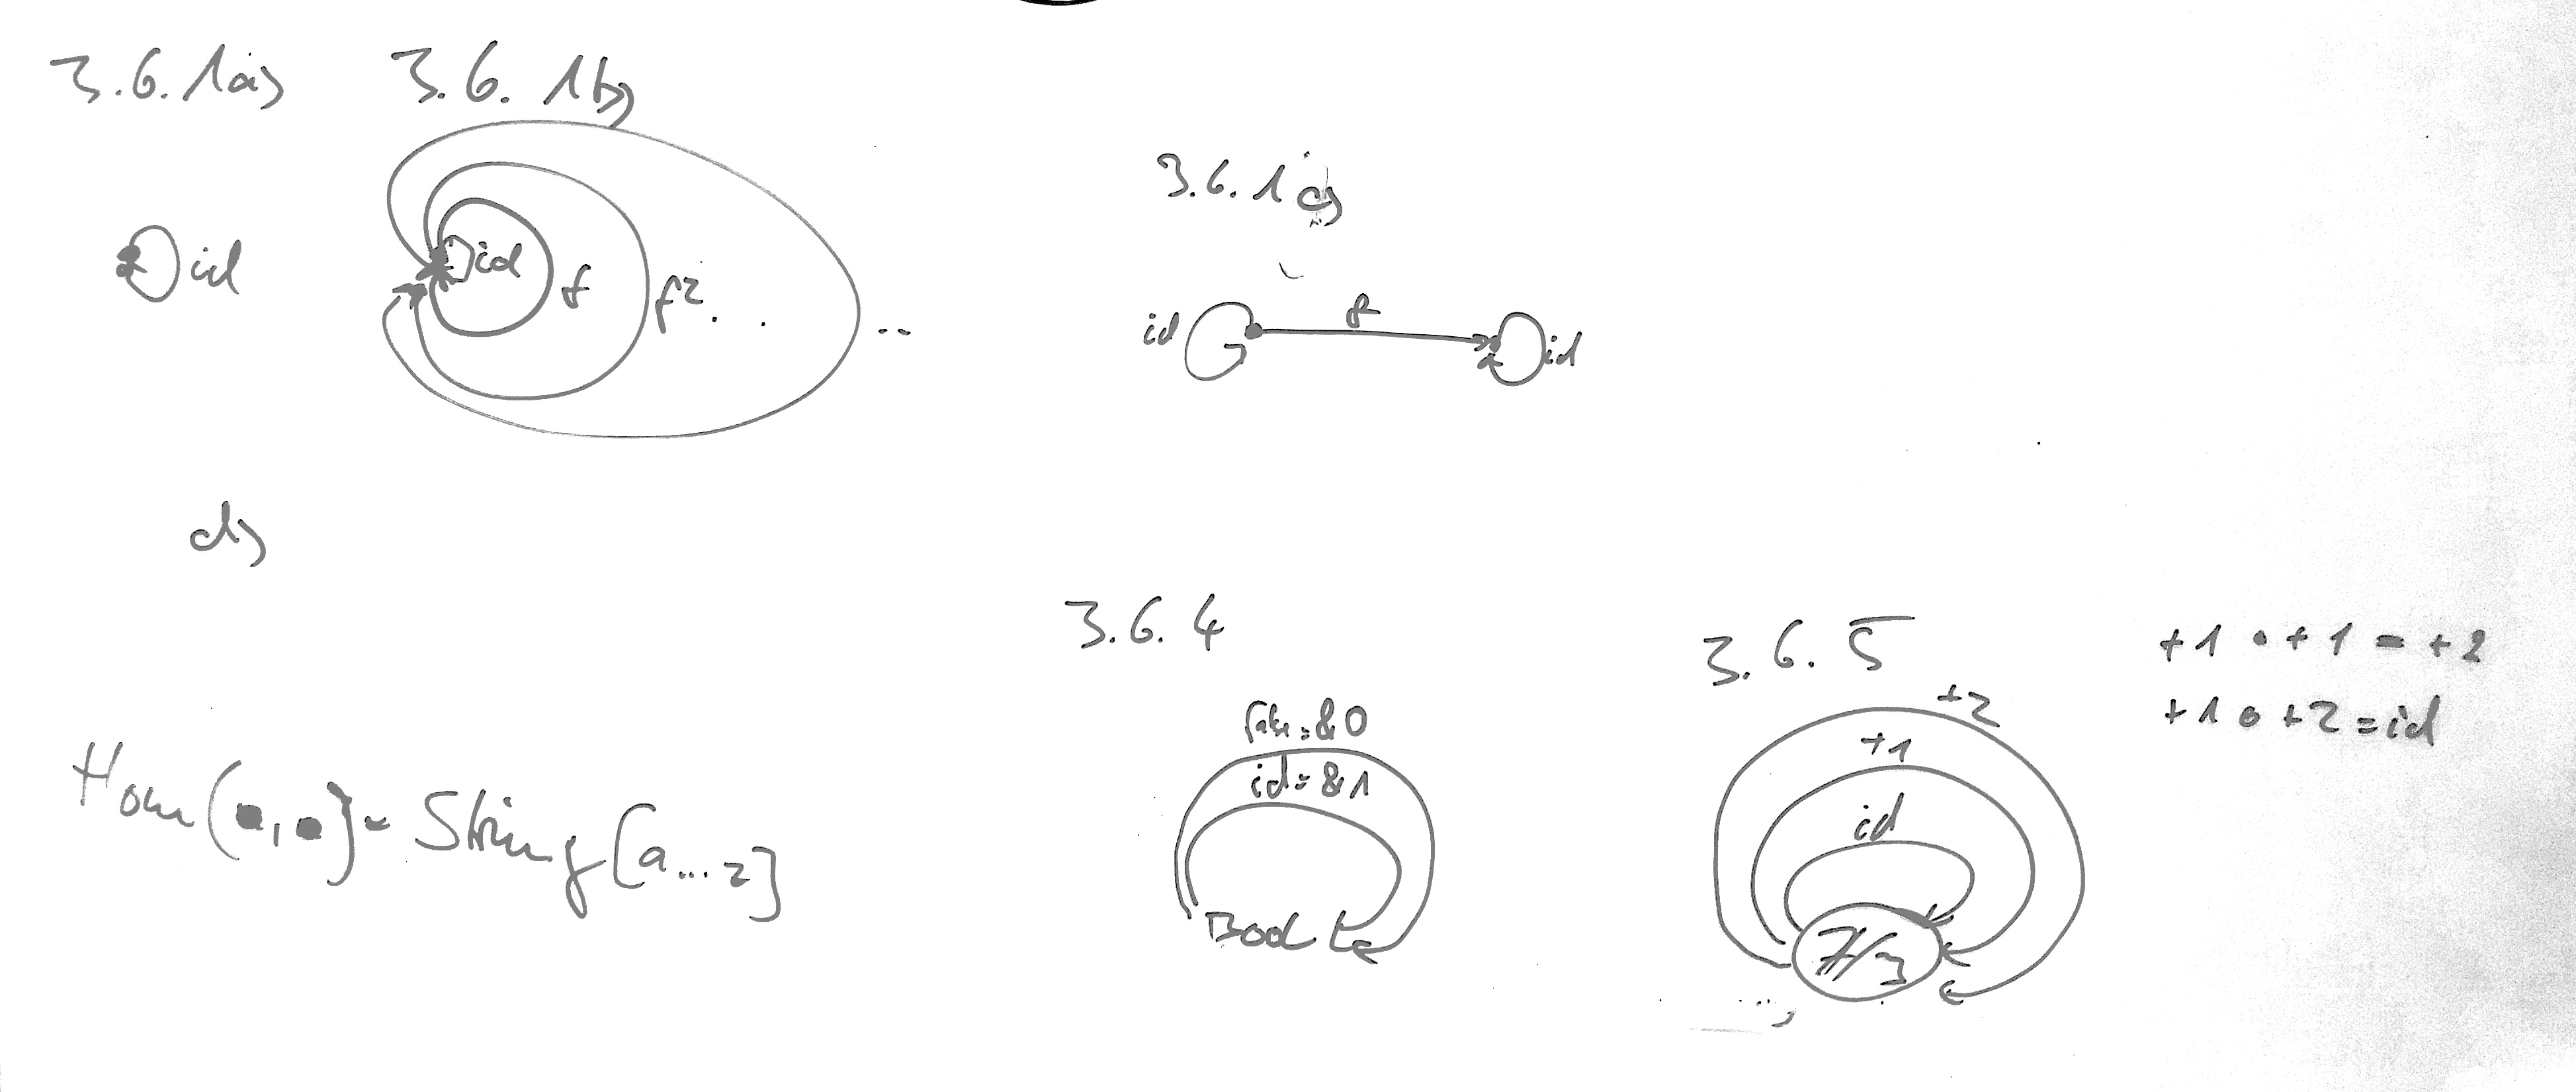 3.6.1a)
3.6.1b)
id
id
f
f²...
..
3.6.1c)
id
f
id
d)
Hom(•,•) = String[a...z]
3.6.4
false=&0
id=&1
Bool
3.6.5
+2
+1
id
ℤ/3
+1 ∘ +1 = +2
+1 ∘ +2 = id